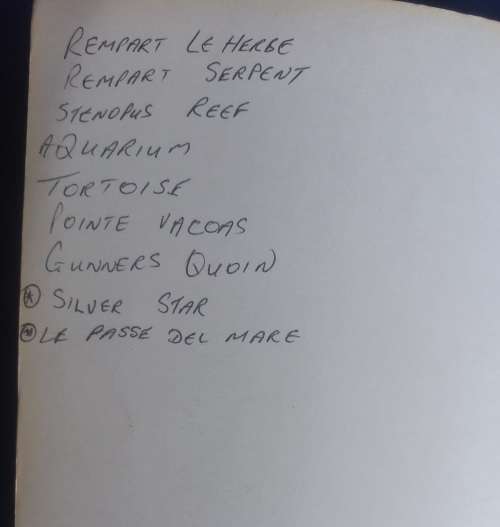 REMPART LE HERBE
REMPART SERPENT
STENOPUS REEF
AQUARIUM
TORTOISE
POINTE VACOAS
GUNNERS QUOIN
SILVER STAR
LE PASSE DEL MARE